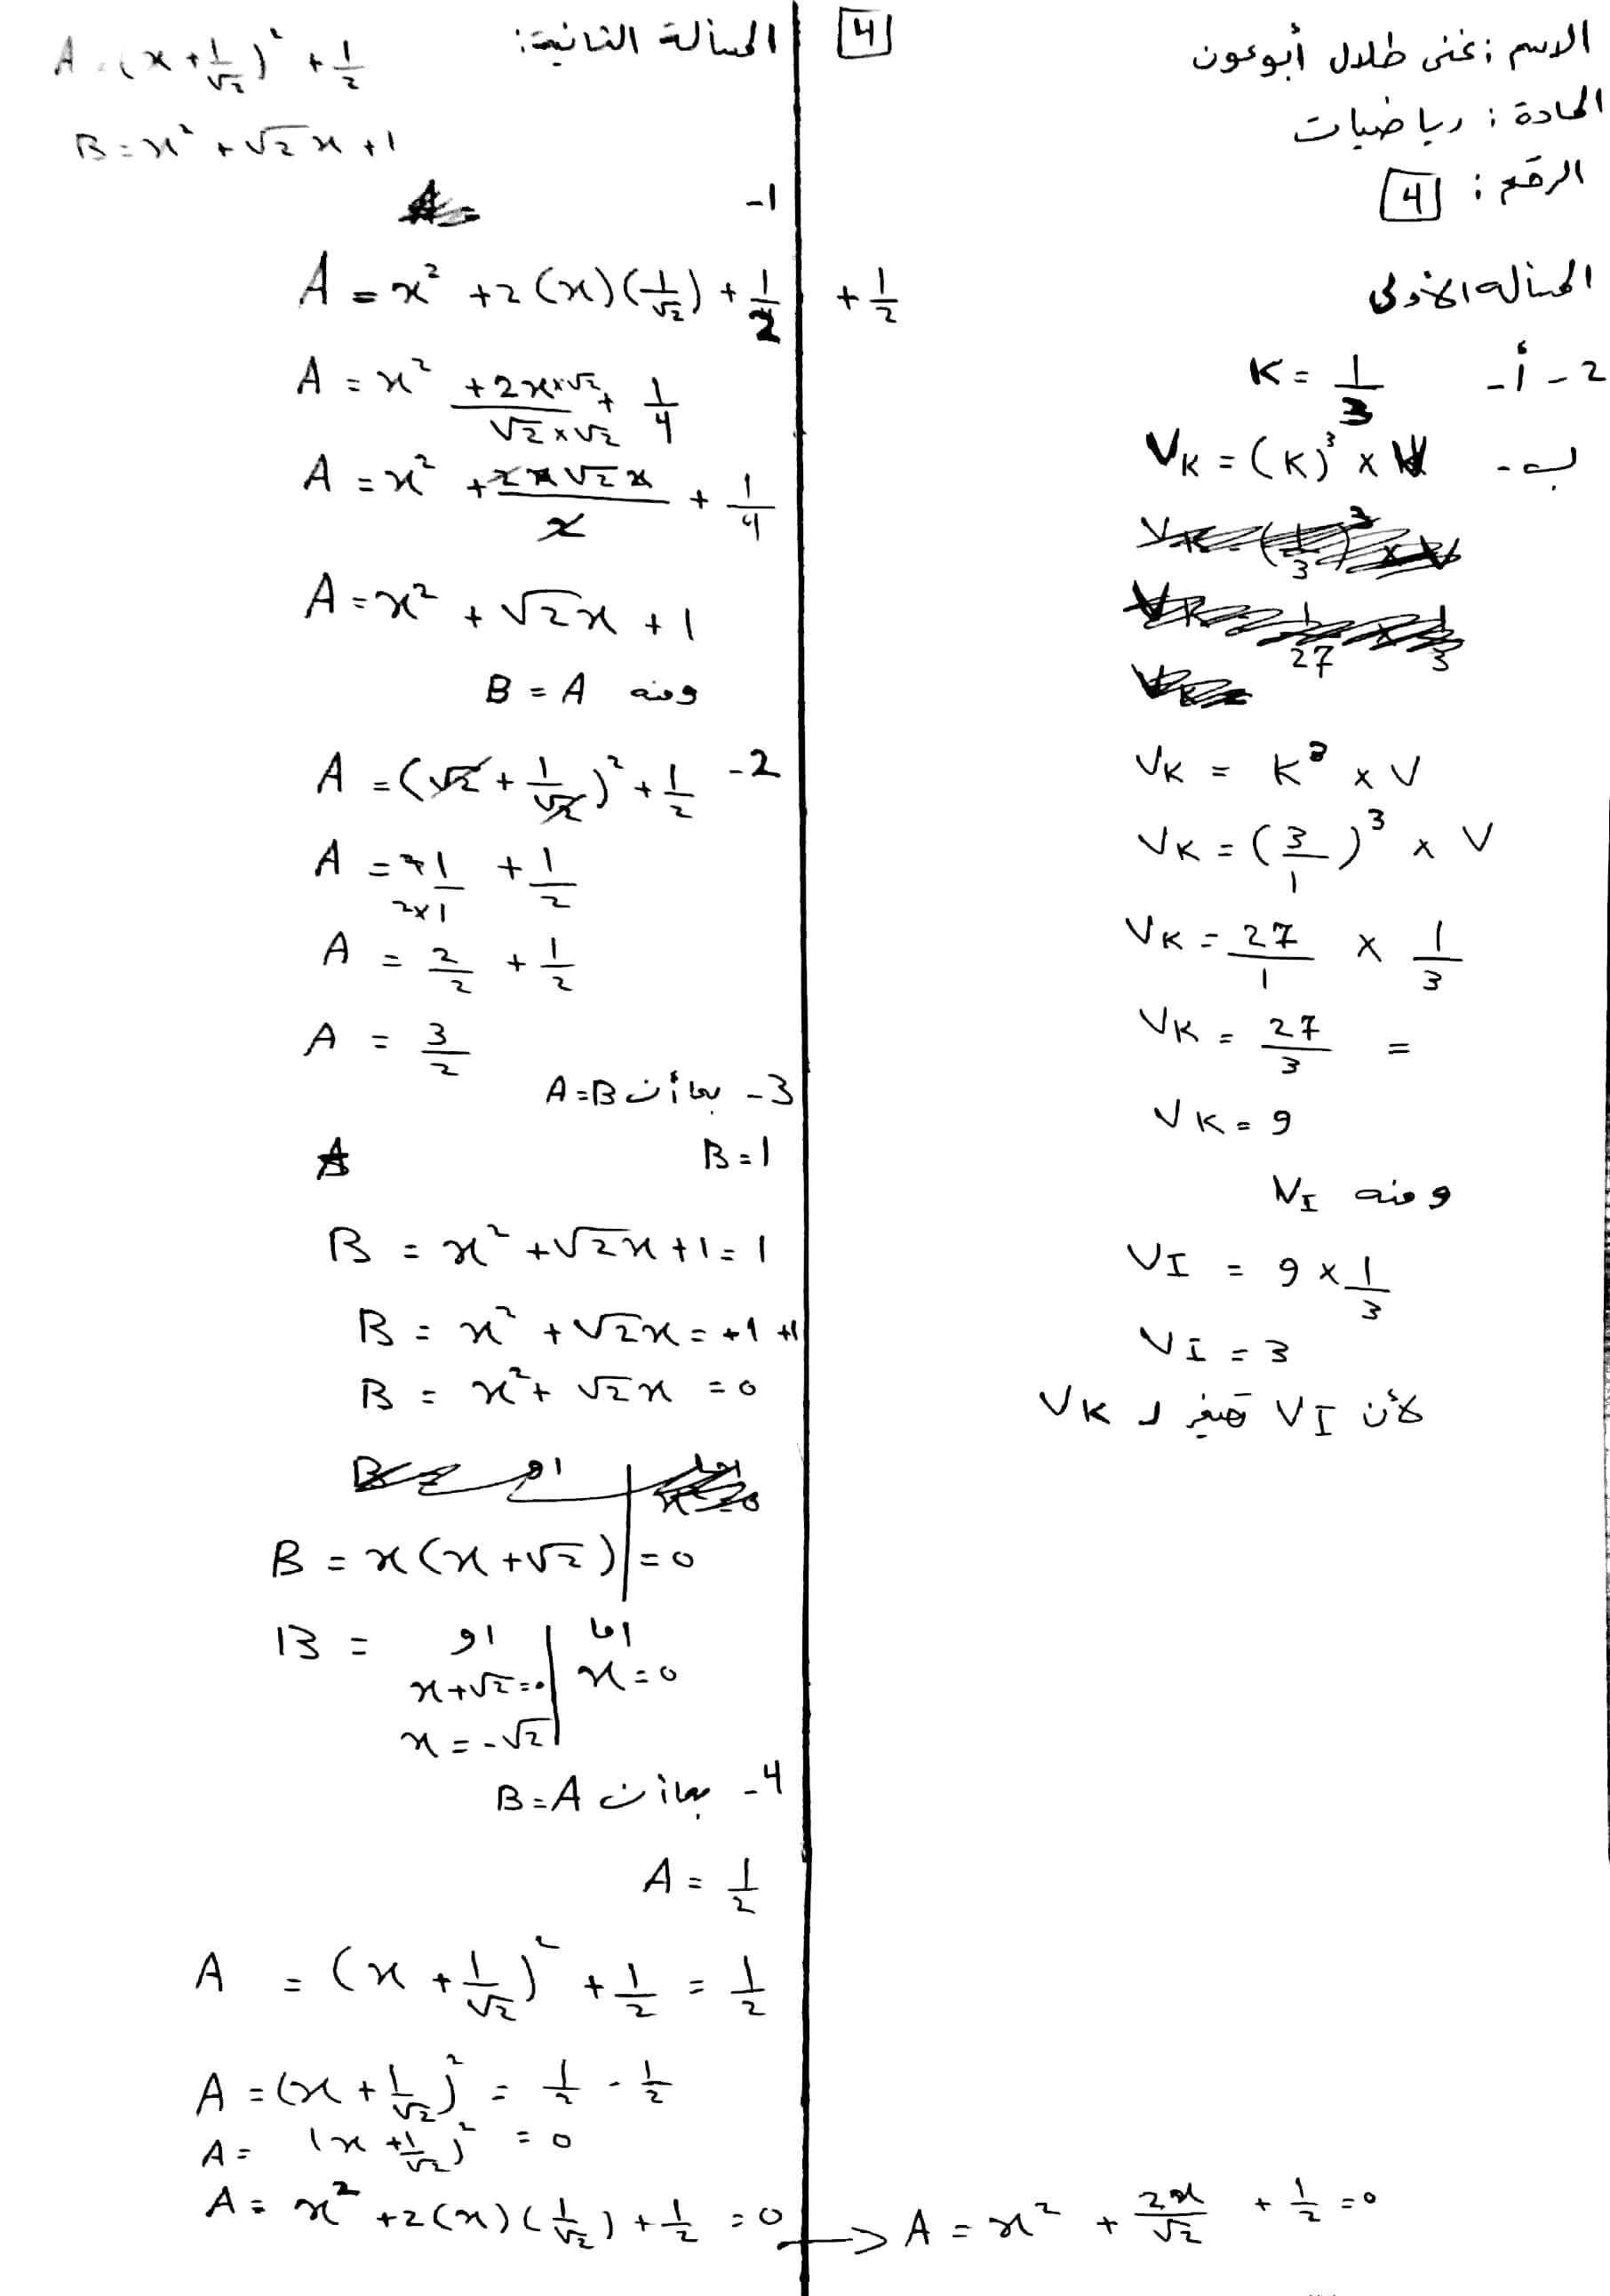 الاسم : غنى طلال أبوعون
المادة : رياضيات
الرقم : 4
المسألة الأولى
2 - أ - K = 1/3
ب - VK = (K)³ ×
VK = K³ × V
VK = (3/1)³ × V
VK = 27/1 × 1/3
VK = 27/3 =
VK = 9
ومنه VI
VI = 9 × 1/3
VI = 3
لأن VI تصغير لـ VK
4
المسألة الثانية:
A = (x + 1/√2)² + 1/2
B = x² + √2 x + 1
1-
A = x² + 2(x)(1/√2) + 1/2 + 1/2
A = x² + 2x×√2/√2×√2 + 1/4
A = x² + 2√2x/2 + 1/4
A = x² + √2x + 1
ومنه B = A
2- A = (√2 + 1/√2)² + 1/2
A = 1/1 + 1/2
2×1
A = 2/2 + 1/2
A = 3/2
3- بما أن A=B
B = 1
B = x² + √2x + 1 = 1
B = x² + √2x = +1 +1
B = x² + √2x = 0
B = x(x + √2) = 0
B = اما x = 0 | او x+√2=0
x = -√2
4- بما أن B = A
A = 1/2
A = (x + 1/√2)² + 1/2 = 1/2
A = (x + 1/√2)² = 1/2 - 1/2
A = (x + 1/√2)² = 0
A = x² + 2(x)(1/√2) + 1/2 = 0 → A = x² + 2x/√2 + 1/2 = 0